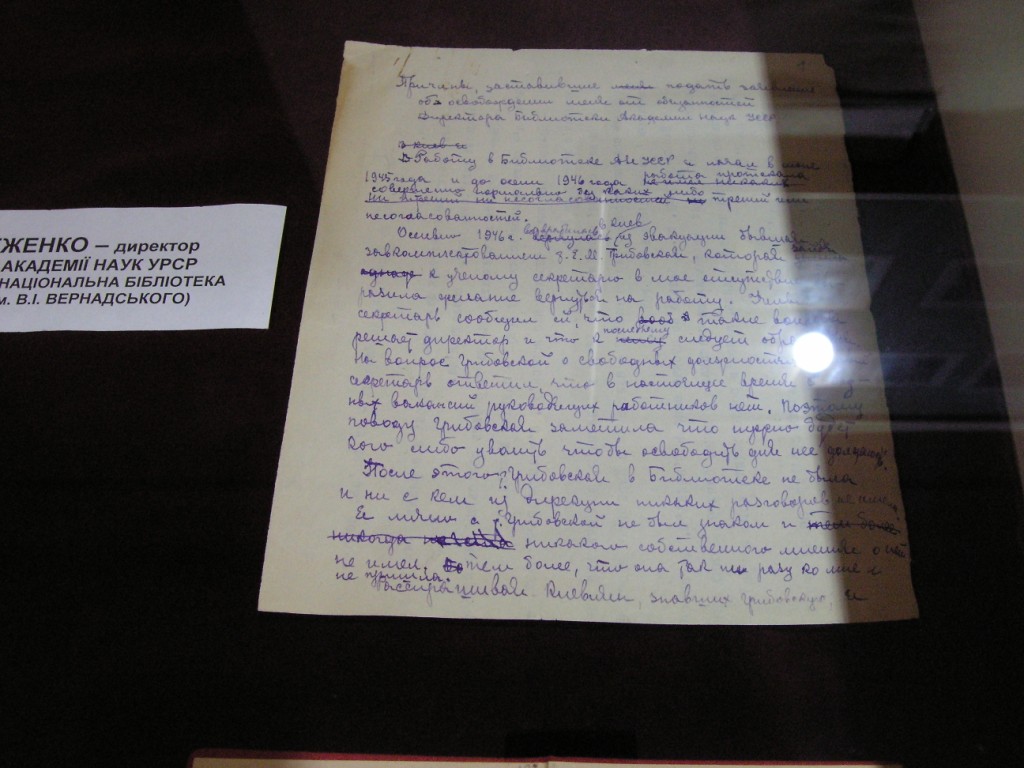 ЖЕНКО – директор
АКАДЕМІЇ НАУК УРСР
НАЦІОНАЛЬНА БІБЛІОТЕКА
м. В.І. ВЕРНАДСЬКОГО)
1
Причины, заставившие меня подать заявление
об освобождении меня от обязанностей
Директора Библиотеки Академии наук УССР
Работу в Библиотеке АН УССР я начал в
1945 года и до осени 1946 года работа протекала
совершенно нормально без каких либо
трений или
несогласованностей.
Осенью 1946 г. возвратилась в Киев из эвакуации бывшая
завкомплектованием Грибовская, которая
к ученому секретарю в мое отсутствие
желание вернуться на работу.
секретарь сообщил ей, что такие вопросы
решает директор и что к последнему следует
На вопрос Грибовской о свободных должностях
секретарь ответил, что в настоящее время
вакансий руководящих работников нет. Поэтому
поводу Грибовская заметила что нужно будет
кого либо уволить чтобы освободить для нее должность.
После этого Грибовская в Библиотеке не была
и ни с кем из Дирекции никаких разговоров не имела.
Я лично с Грибовской не был знаком и
никогда никакого собственного мнения о ней
не имел. тем более, что она так ни разу ко мне и
не пришла.
Расспрашивал киевлян, знавших Грибовскую,